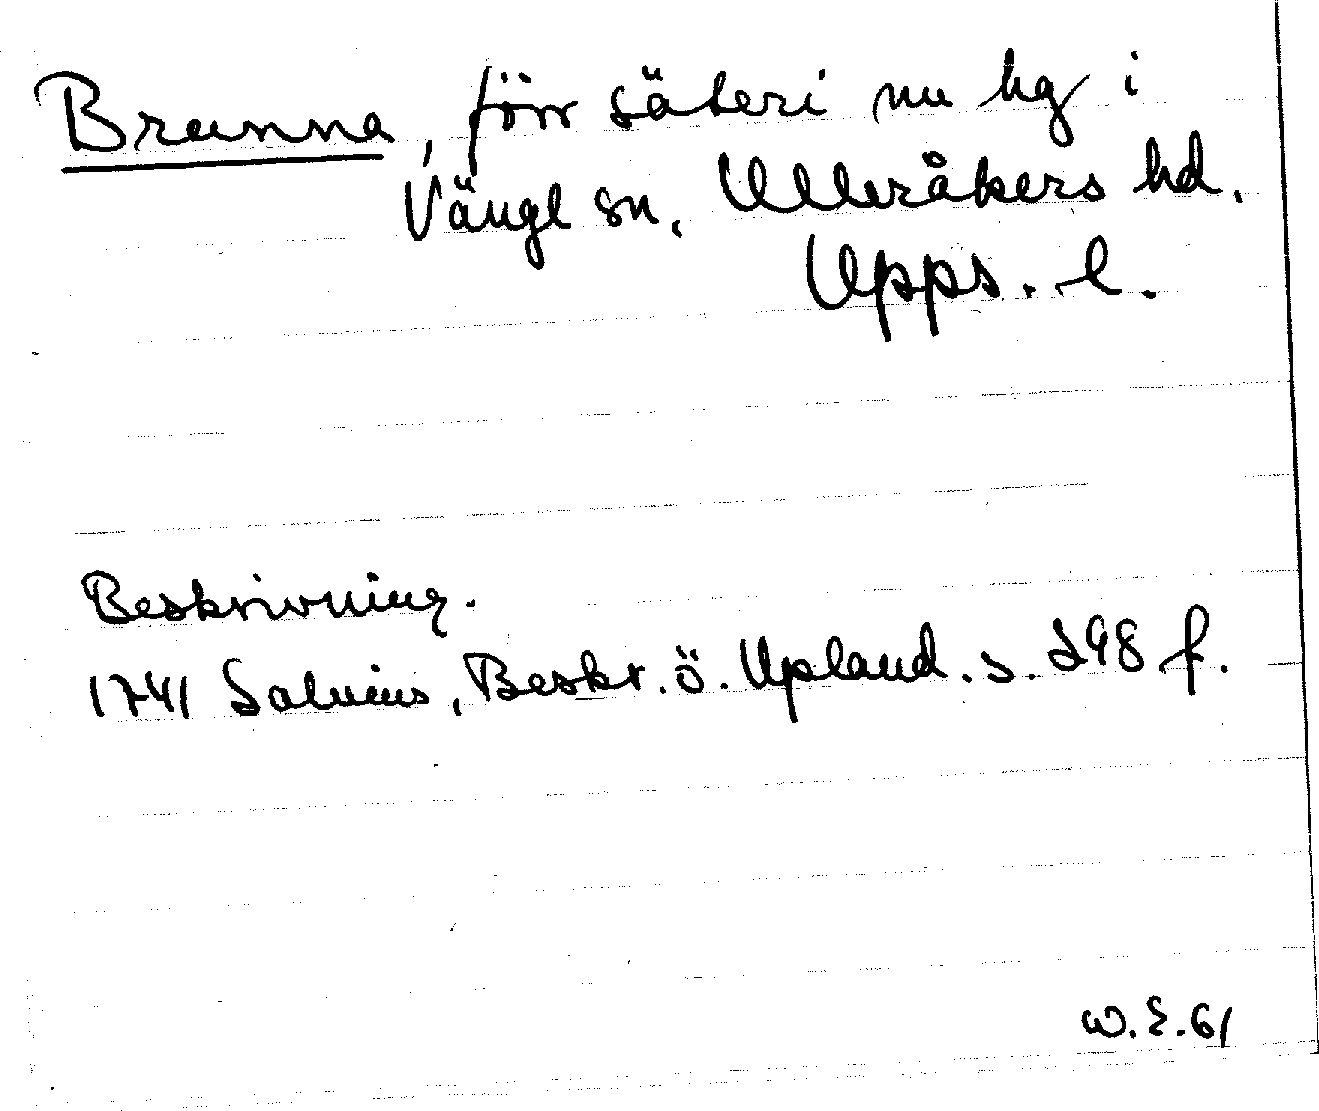 Brunna, förr säteri nu hg i
Vängl sn. Ulleråkers hd.
Upps. l.
Beskrivning.
1741 Salvius, Beskr. ö. Upland. s. 298 f.
W. E. 61